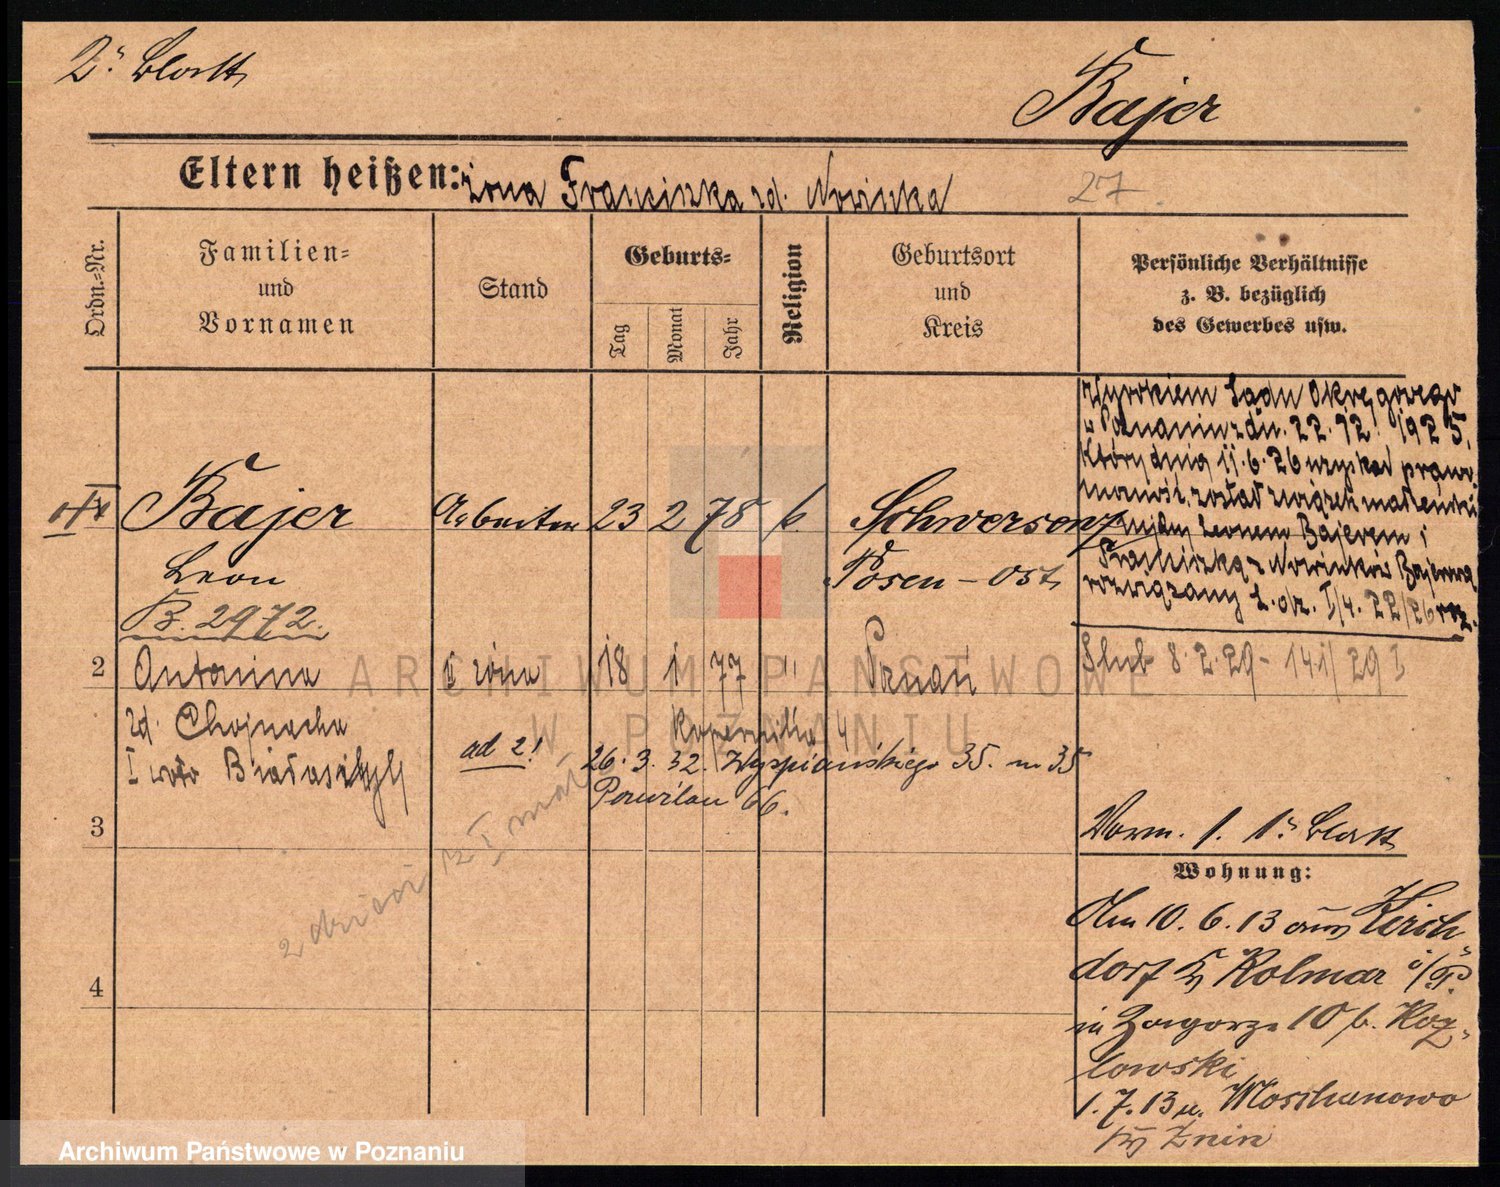 2. Blatt
Bajer
Eltern heißen: żona Franciszka zd. Nowicka
27
Ordn.-Nr.
Familien-
und
Vornamen
Stand
Geburts-
Tag
Monat
Jahr
Religion
Geburtsort
und
Kreis
Persönliche Verhältnisse
z. B. bezüglich
des Gewerbes usw.
Wyrokiem Sądu Okręgowego
w Poznaniu z dn. 22. 12. 1925,
który dnia 11.6.26 uzyskał prawo
został związek małżeński
Leonem Bajerem i
Franciszką z Nowickich Bajerową
rozwiązany L. dz. I/4. 22/26
Bajer Arbeiter 23 2 78 k. Schwersenz
Leon Posen-Ost
B. 2972.
2 Antonina II żona 18 1 77 " Poznań Ślub 8.2.29 - 141/29 I
zd. Chojnacka
I voto
ad 2! 26. 3. 32. Wyspiańskiego 35. m 35
66.
3
2 dzieci z I małż.
Vorm. s. 1. Blatt
Wohnung:
Am 10. 6. 13 aus Kirch-
dorf Kr. Kolmar i/P.
in Zagorze 10 b. Koz-
lowski
1. 7. 13 n.
Kr. Znin
4
ARCHIWUM PAŃSTWOWE
W POZNANIU
Archiwum Państwowe w Poznaniu